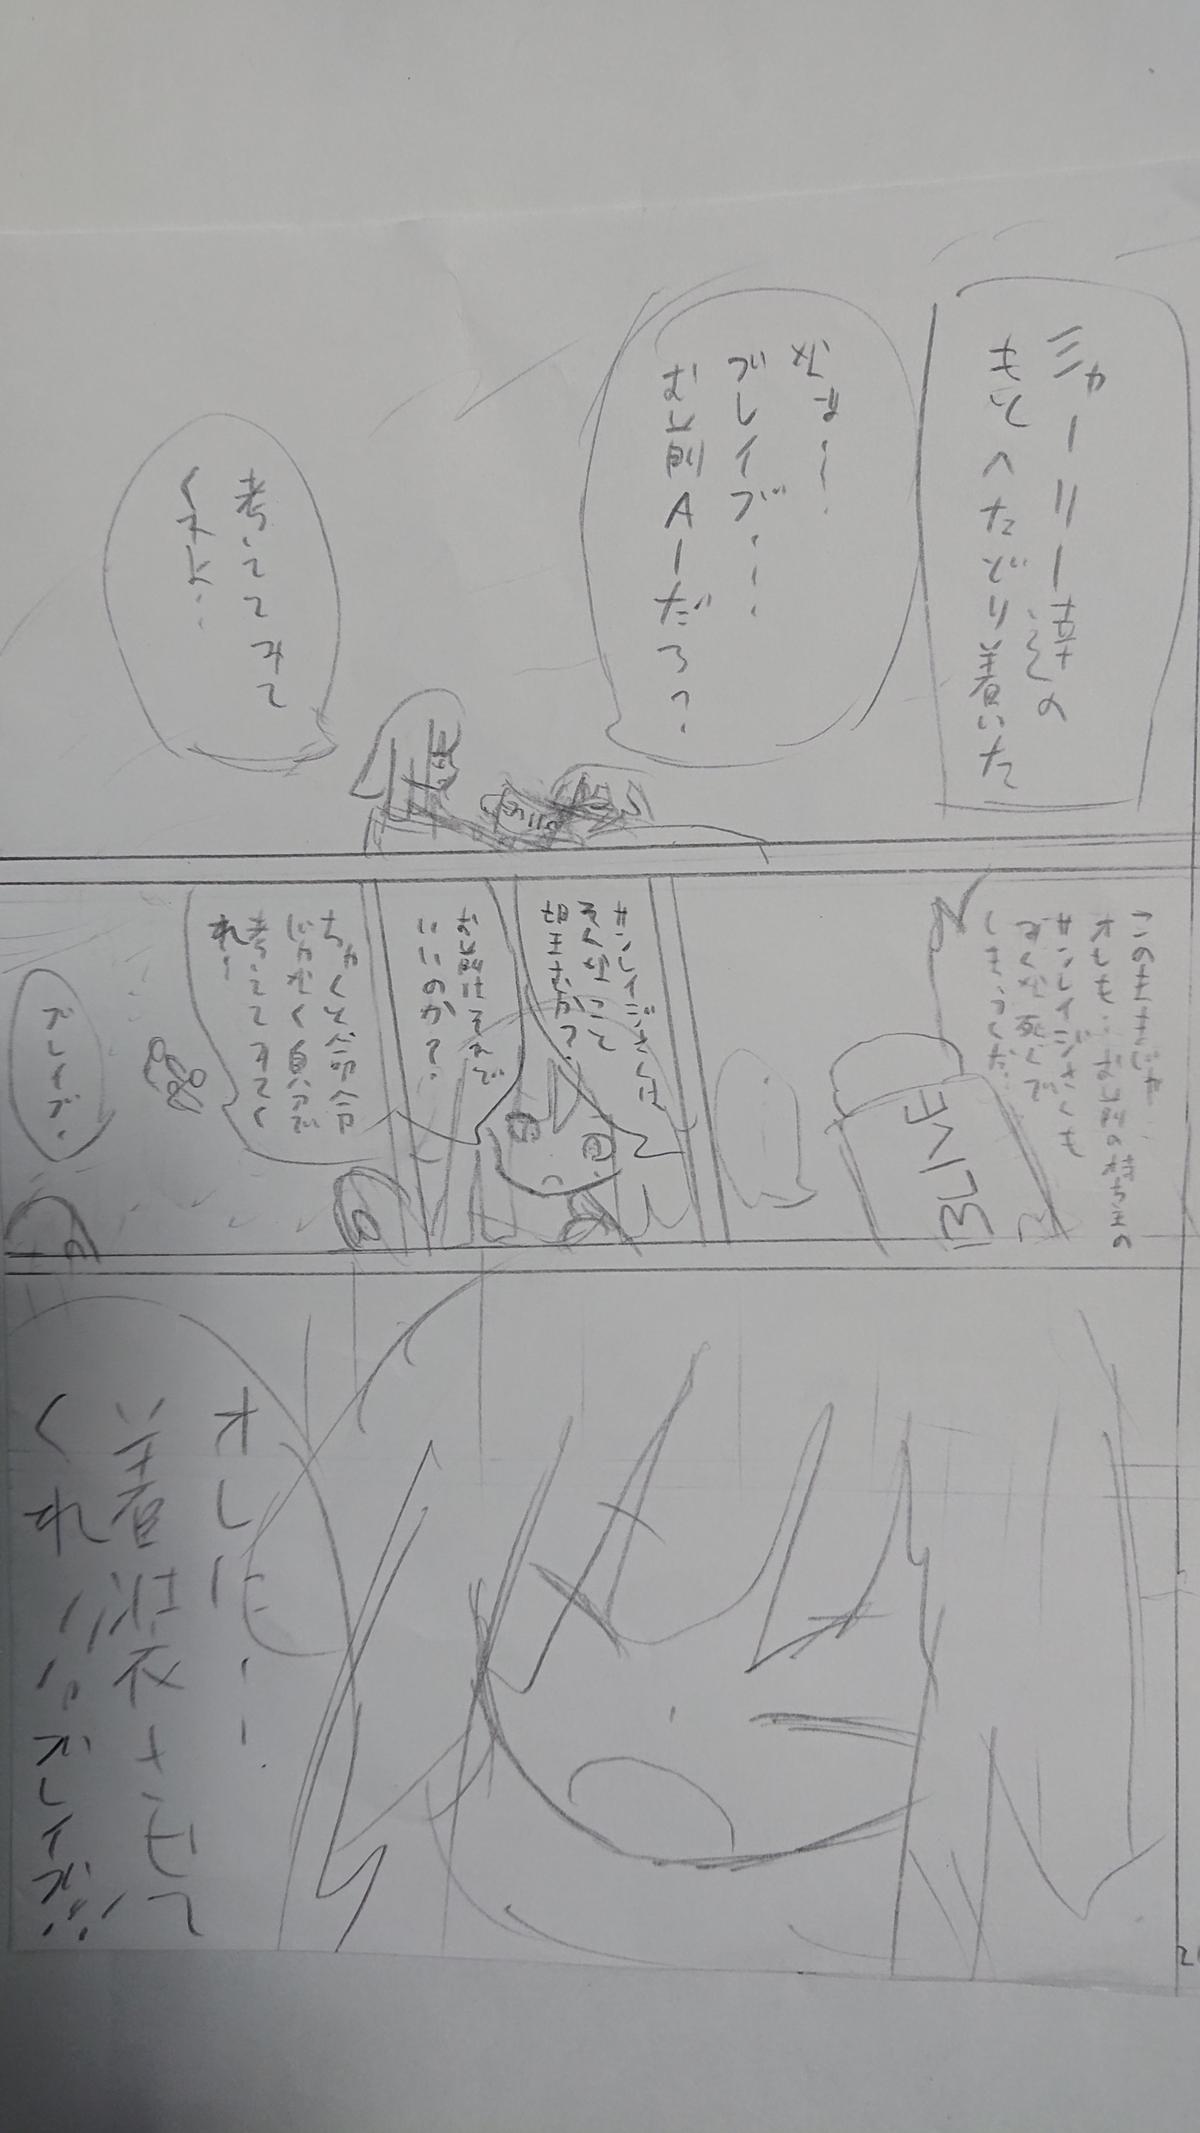 シャーリー達の
もとへたどり着いた
なぁ…
ブレイブ…
お前AIだろ?
考えてみて
くれよ…
このままじゃ
オレも…お前の持ち主の
サンレイジさんも
なく死んで
しまうんだ…
BLIVE
サンレイジさんは
そんなこと
望むか?
お前はそれで
いいのか?
ちゃんと命令
じゃなく自分で
考えてみてく
れ…
ブレイブ…
オレに…
着装させて
くれ
ブレイブ